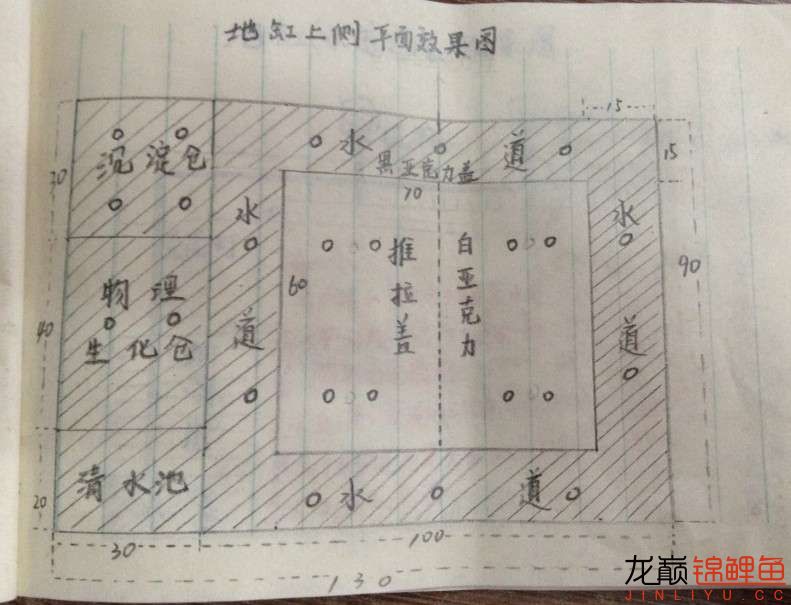 地缸上侧平面效果图
15
沉淀仓
30
水道
15
黑亚克力盖
70
水道
水道
60
推拉盖
白亚克力
90
物理
生化仓
40
清水池
20
水道
30
100
130
龙巅锦鲤鱼
JINLIYU.CC